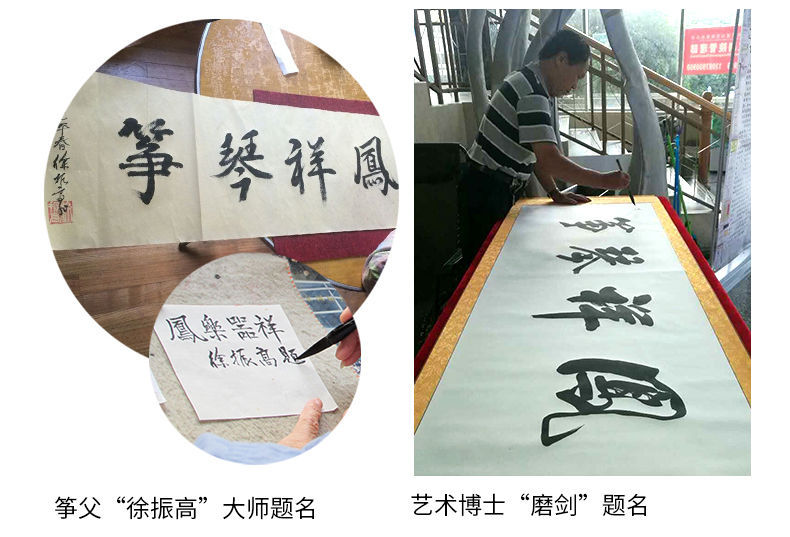 鳳祥琴箏
年春徐振高
鳳樂器祥
徐振高題
鳳祥琴箏
筝父“徐振高”大师题名
艺术博士“磨剑”题名